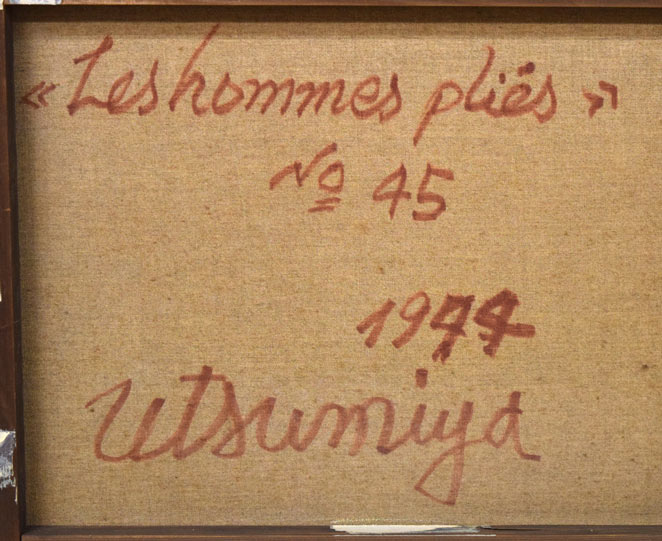 « Les hommes pliés »
No 45
1974
Utsumiya